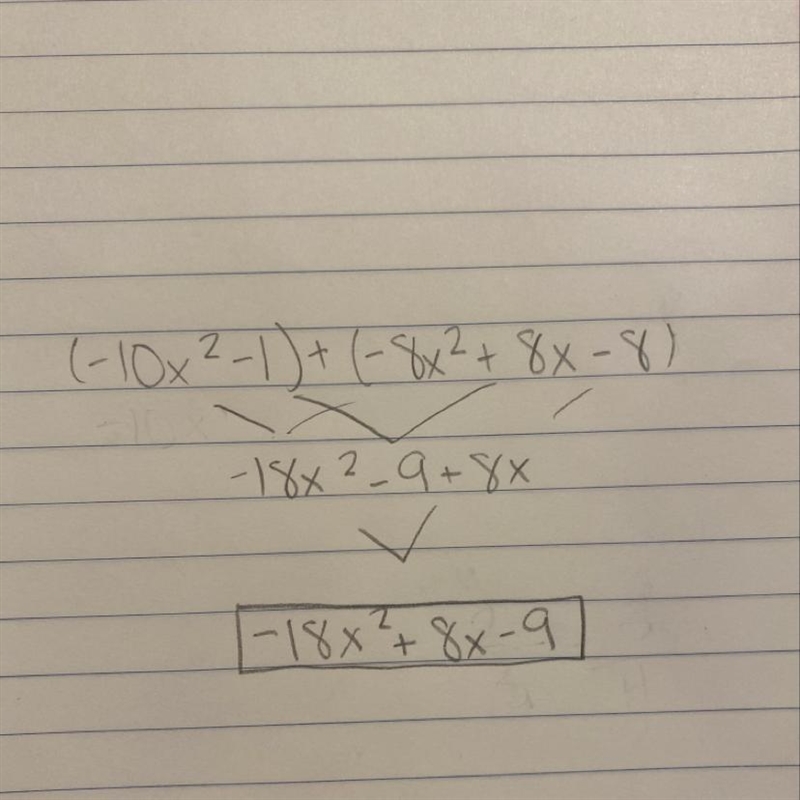 (-10x²-1)+(-8x²+8x-8)
-18x²-9+8x
-18x²+8x-9